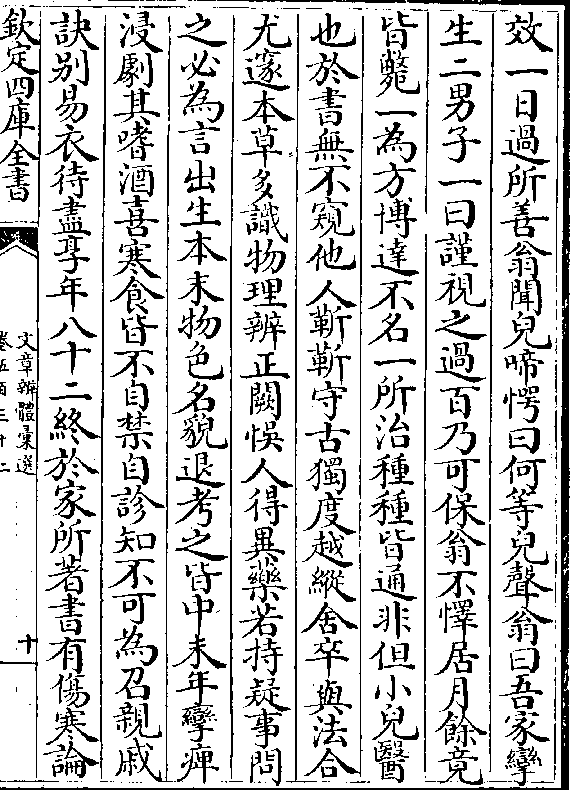 效一日過所善翁聞兒啼愕曰何等兒聲翁曰吾家孿
生二男子一曰謹視之過百乃可保翁不懌居月餘竟
皆斃一為方博達不名一所治種種皆通非但小兒醫
也於書無不窺他人靳靳守古獨度越縱舍卒與法合
尤邃本草多識物理辨正闕悞人得異藥若持疑事問
之必為言出生本末物色名貌退考之皆中末年孿痺
浸劇其嗜酒喜寒食皆不自禁自診知不可為召親戚
訣别易衣待盡享年八十二終於家所著書有傷寒論
欽定四庫全書
文章辨體彚選
卷五百三十二
十